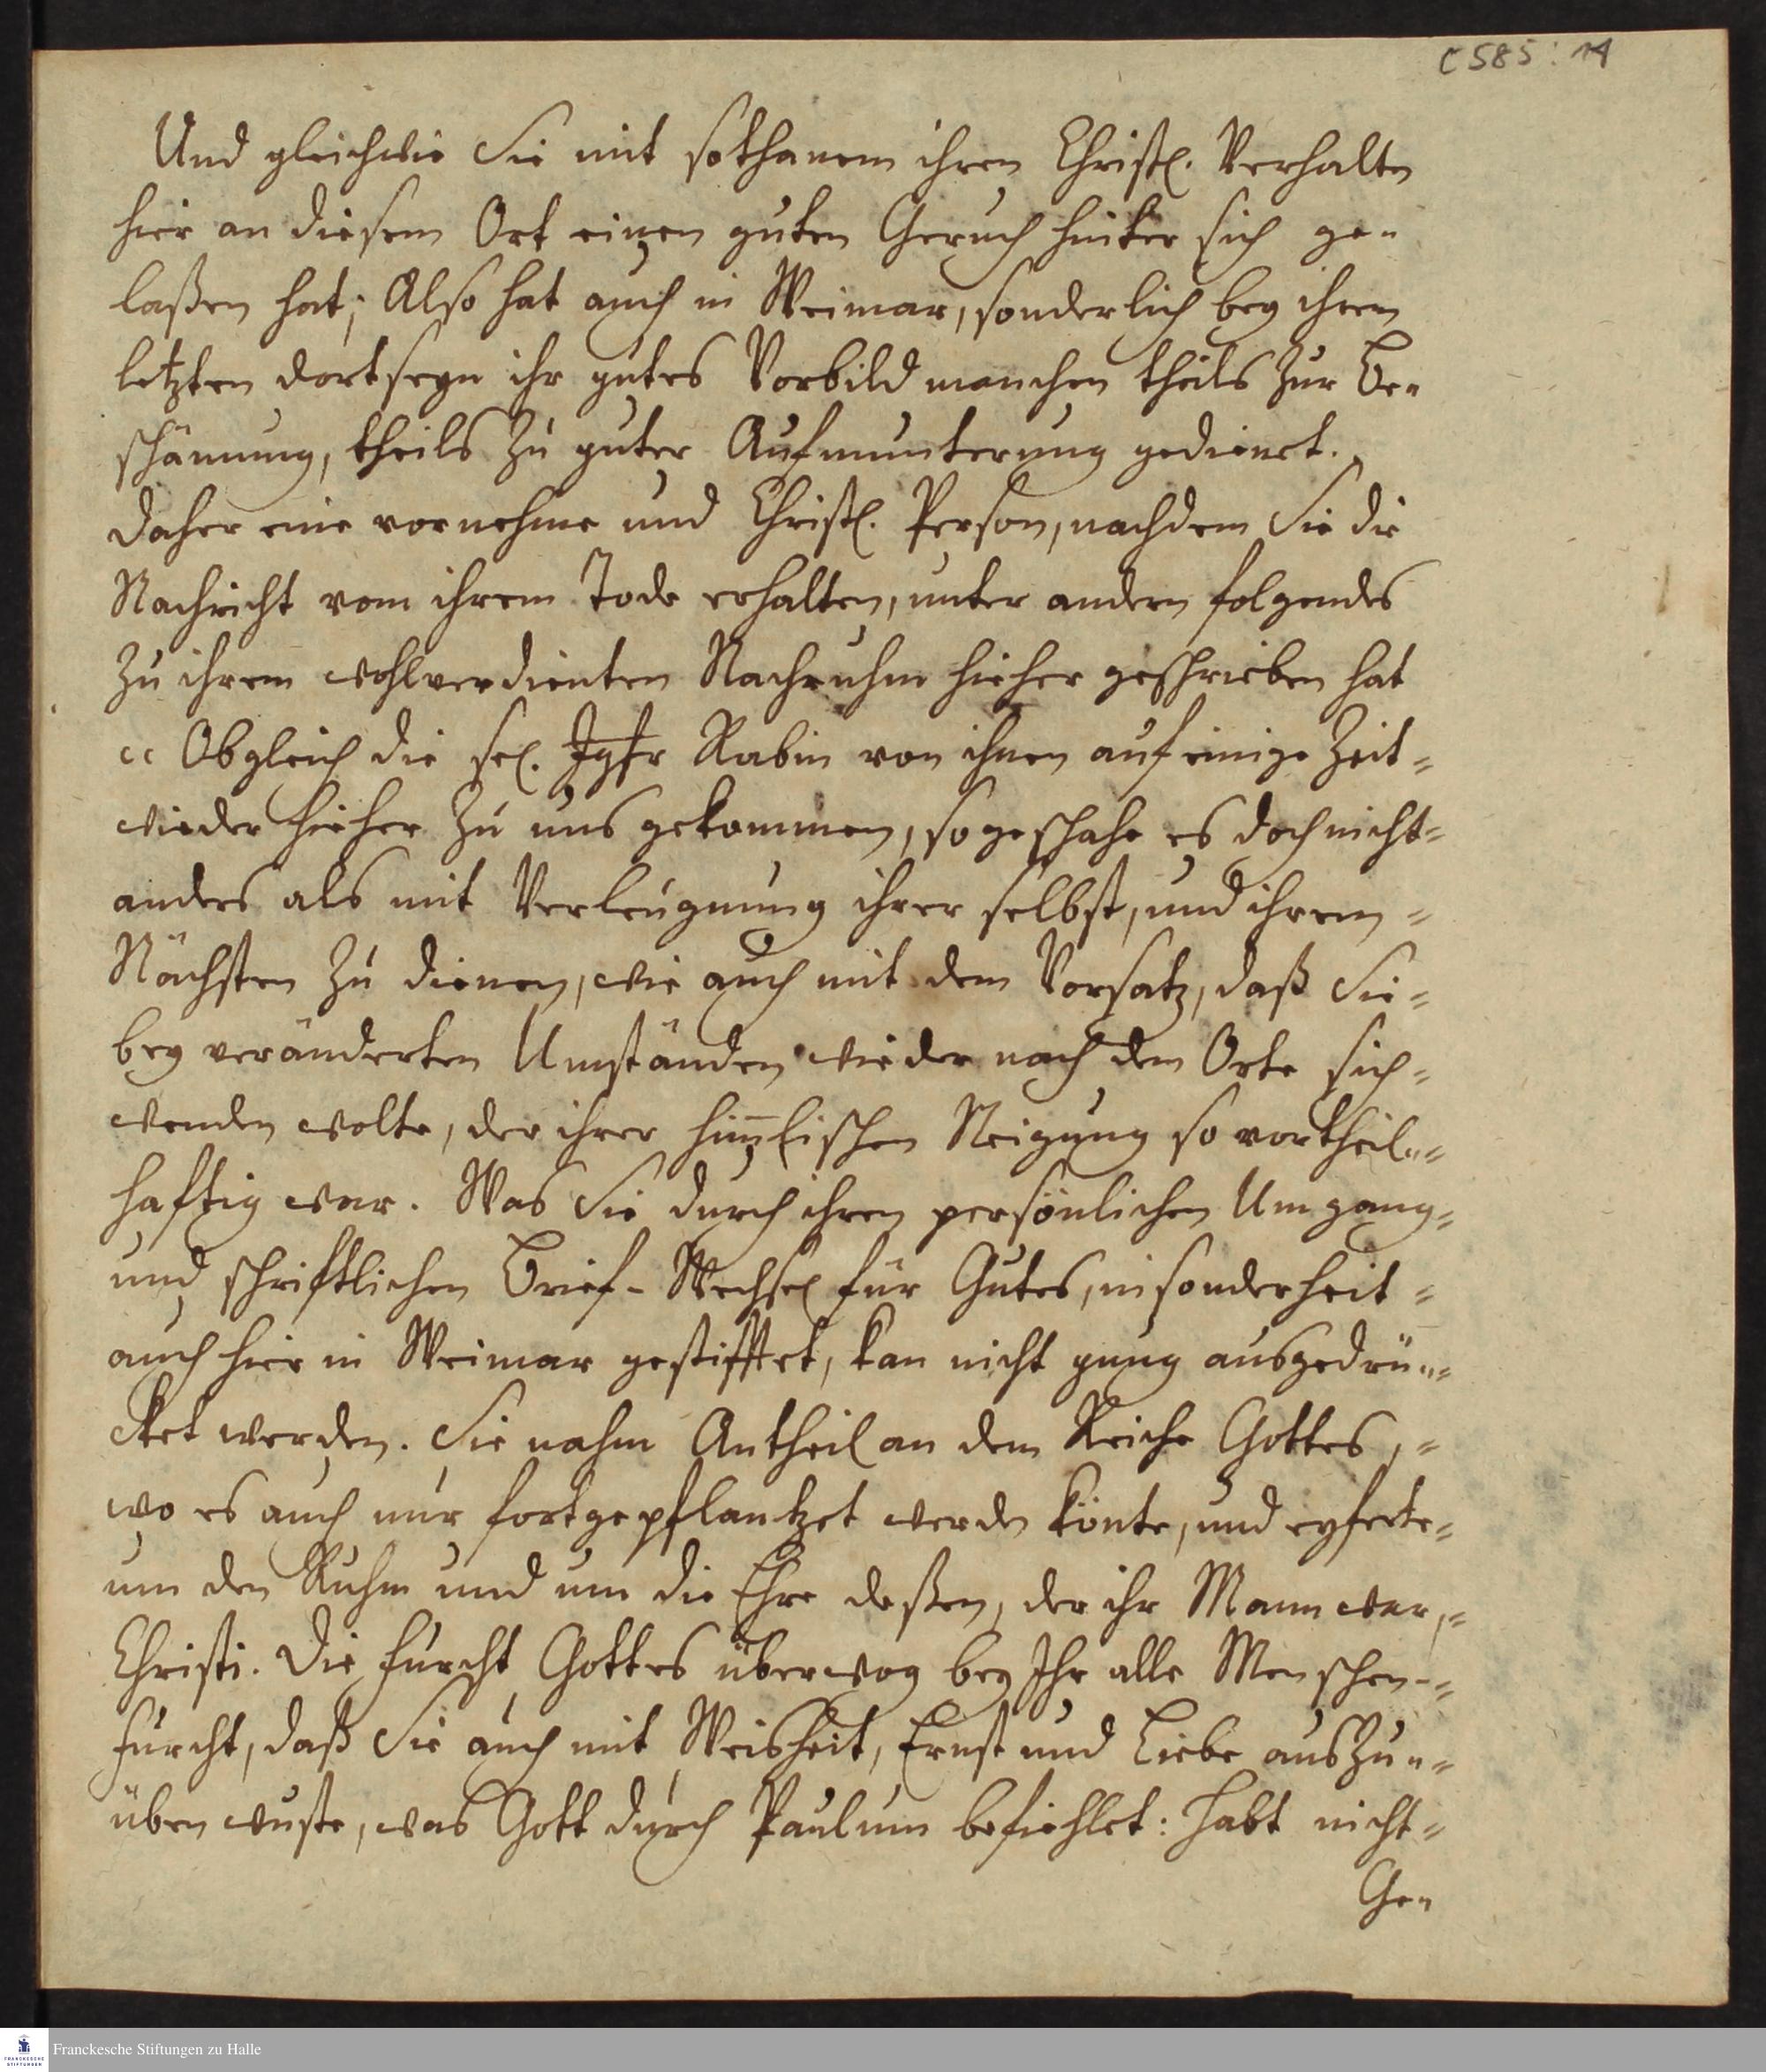 C 585 : 14
Und gleichwie Sie mit sothanem ihren Christl. Verhalten
hier an diesem Ort einen guten Geruch hinter sich ge-
laßen hat; Also hat auch in Weimar, sonderlich bey ihrem
letzten dortseyn ihr gutes Vorbild manchen theils zur Be-
schämung, theils zu guter Aufmunterung gedienet.
Daher eine vornehme und Christl. Person, nachdem Sie die
Nachricht vom ihrem Tode erhalten, unter andern folgendes
zu ihrem wohlverdienten Nachruhm hieher geschrieben hat
" Obgleich die sel. Jgfr Rabin von ihnen auf einige Zeit =
wieder hieher zu uns gekommen, so geschahe es doch nicht =
anders als mit Verleugnung ihrer selbst, und ihrem =
Nächsten zu dienen, wie auch mit dem Vorsatz, daß Sie =
bey veränderten Umständen wieder nach dem Orte sich =
wenden wolte, der ihrer him̅lischen Neigung so vortheil- =
hafftig war. Was Sie durch ihren persönlichen Umgang =
und schrifftlichen Brief-Wechsel für Gutes, insonderheit =
auch hier in Weimar gestifftet, kan nicht gnug ausgedrü- =
cket werden. Sie nahm Antheil an dem Reiche Gottes, =
wo es auch nur fortgepflantzet werden könte, und eyferte =
um den Ruhm und um die Ehre deßen, der ihr Mann war, =
Christi. Die Furcht Gottes überwog bey Ihr alle Menschen- =
Furcht, daß Sie auch mit Weisheit, Ernst und Liebe auszu- =
üben wuste, was Gott durch Paulum befiehlet: Habt nicht =
Ge-
FRANCKESCHE STIFTUNGEN
Franckesche Stiftungen zu Halle